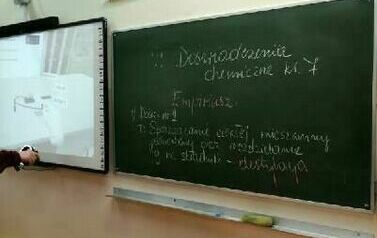 Doświadczenie
chemiczne kl. 7
1) Sporządzanie ciekłej mieszaniny
jednorodnej oraz rozdzielanie
jej na składniki - destylacja